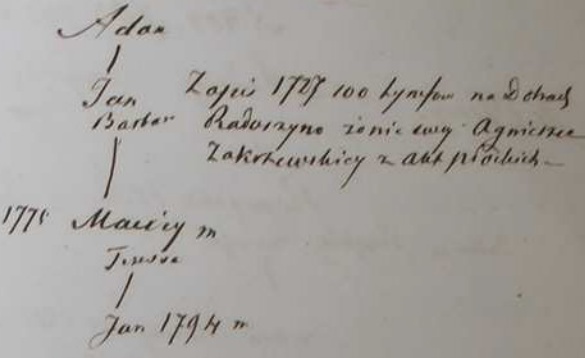 Adam
Jan Zapis 1727 100 tynfow na Dobrach
Barbar Radoszyno żonie swey Agnieszce
Zakrzewskiey z akt płockich
1775 Maciey m
Teressa
Jan 1794 m